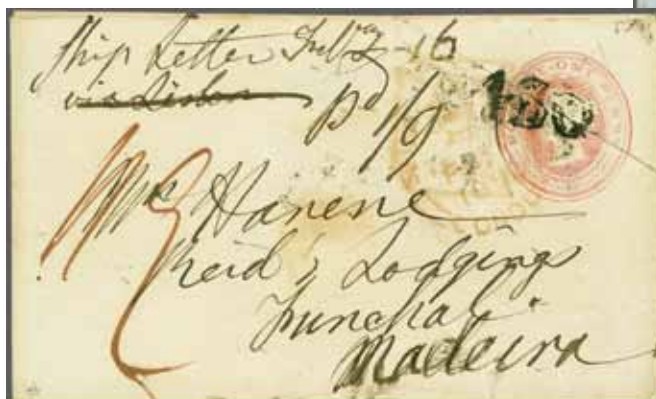 Ship Letter Feby 16
via Lisbon
Pd 1/9
Mrs Harene
Reid's Lodgings
Funchal
Madeira